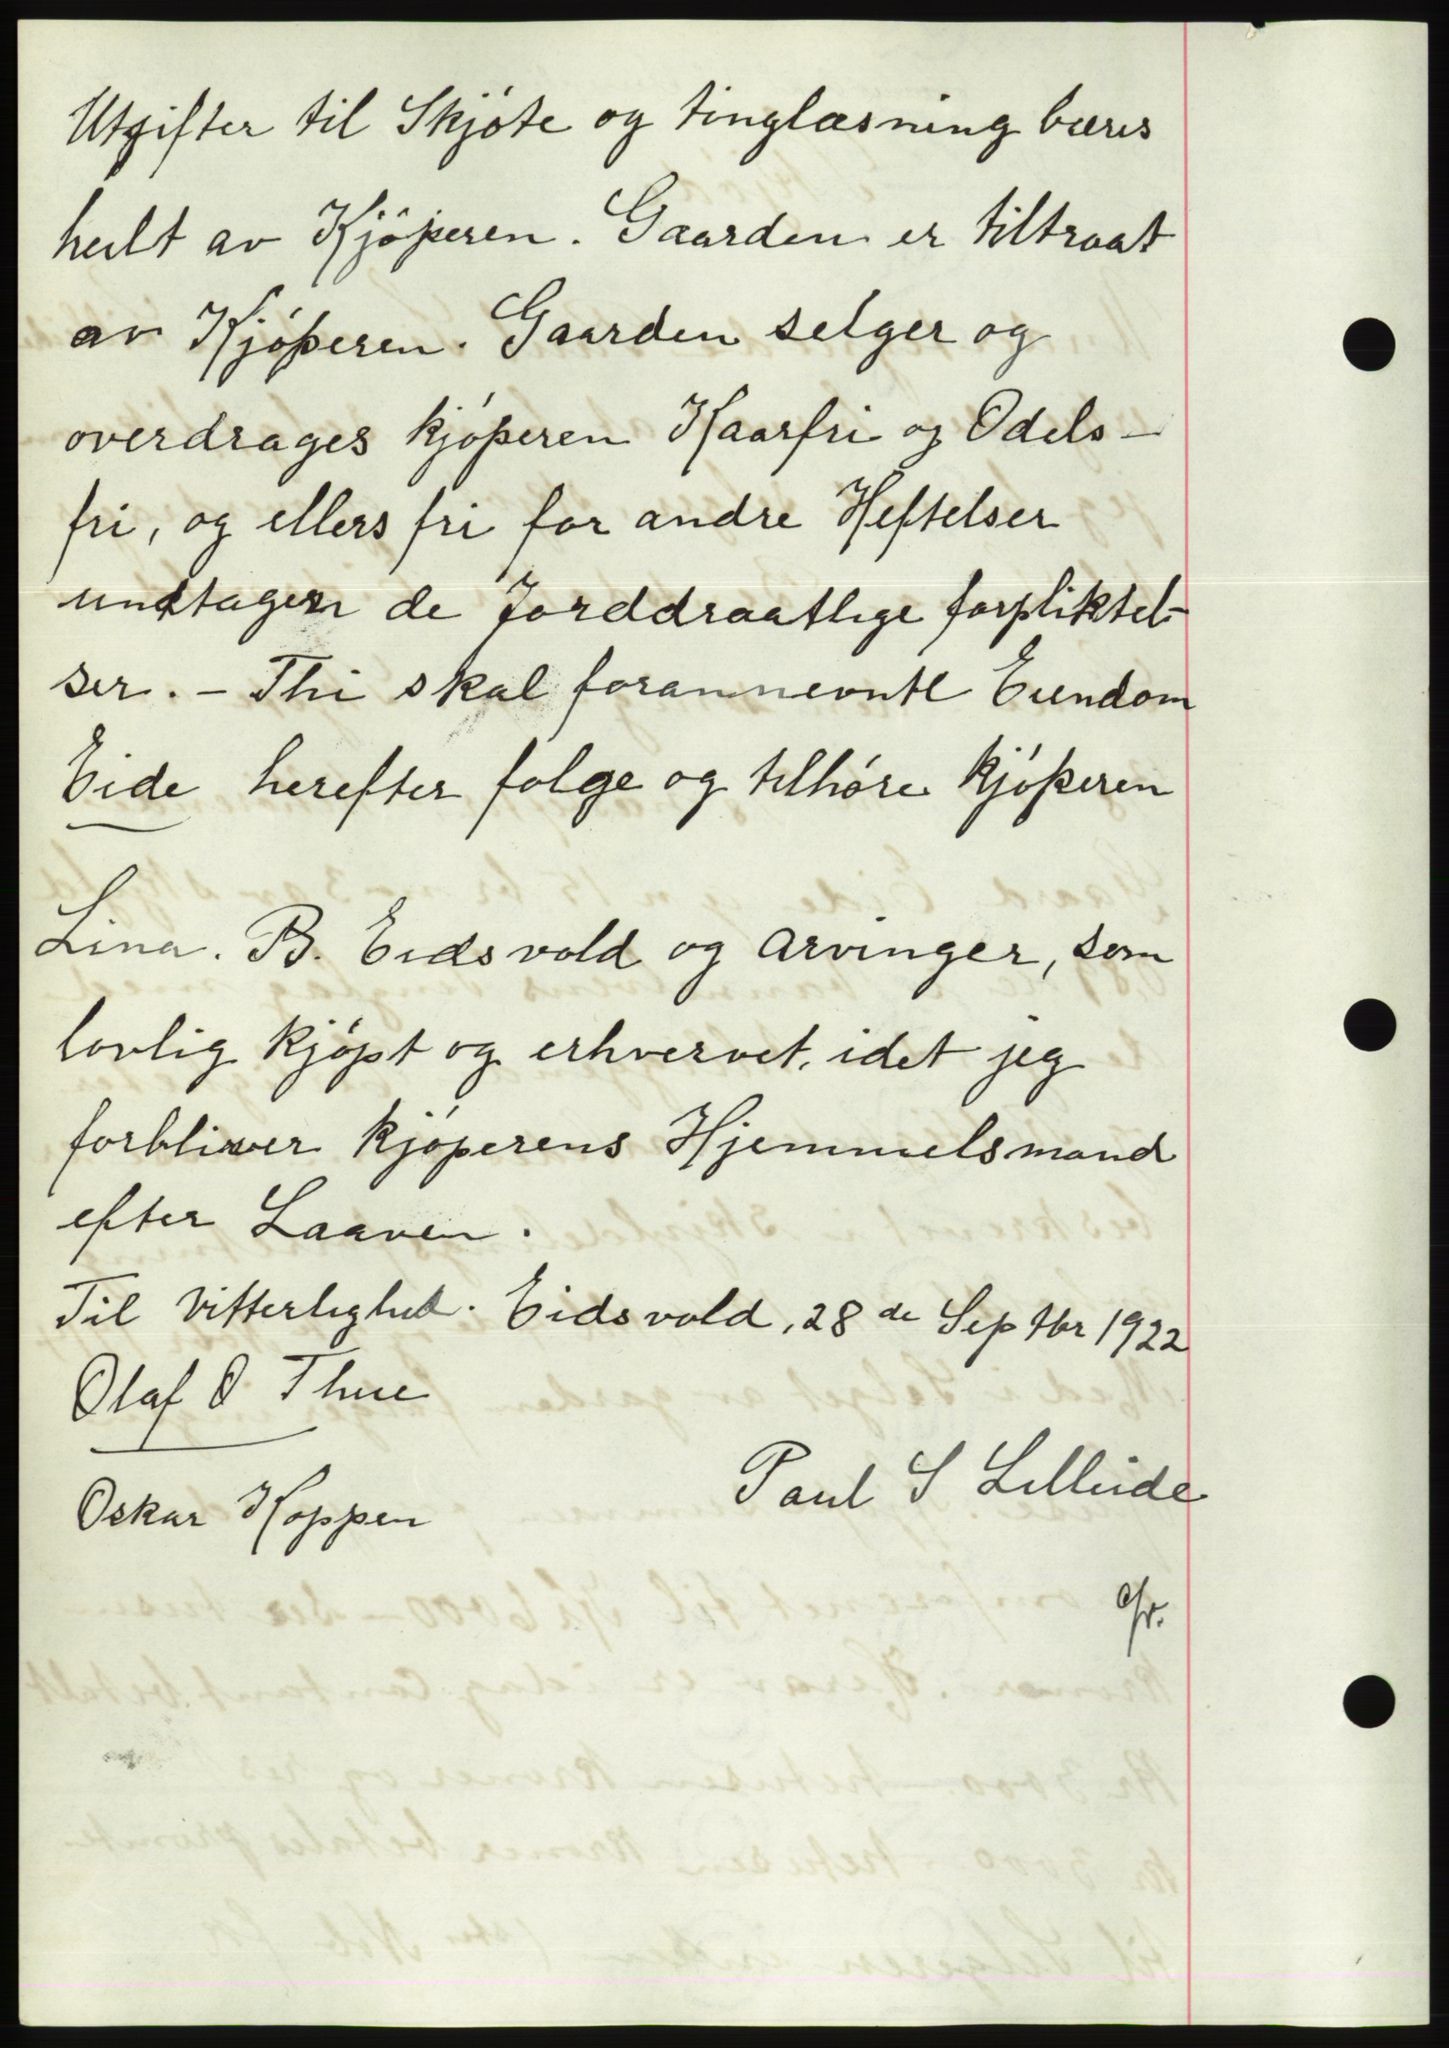 Utgifter til Skjöte og tinglæsning bæres
heilt av Kjöperen. Gaarden er tiltraat
av Kjöperen. Gaarden selger og
overdrages kjöperen Kaarfri og Odels-
fri, og ellers fri for andre Heftelser
undtagen de Jorddraatlige forpliktel-
ser. - Thi skal forannevnte Eiendom
Eide herefter følge og tilhøre kjöperen
Lina. B. Eidsvold og arvinger, som
lovlig kjöpt og erhvervet. idet jeg
forbliver kjöperens Hjemmelsmand
efter Laaven.
Til Vitterlighed. Eidsvold, 28 de Septbr 1922
Olaf O Thue
Paul S Lilleide
Oskar Hoppen